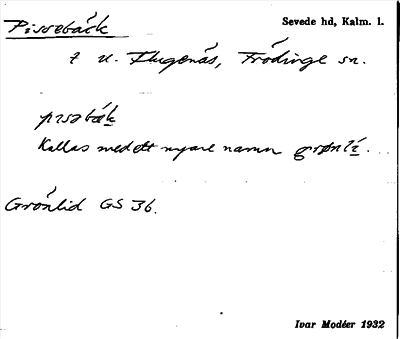 Pissebäck Sevede hd, Kalm. l.
t u. Flugenäs, Frödinge sn.
pɪsəbǽk
Kallas med ett nyare namn grønlí.
Grönlid GS 36.
Ivar Modéer 1932